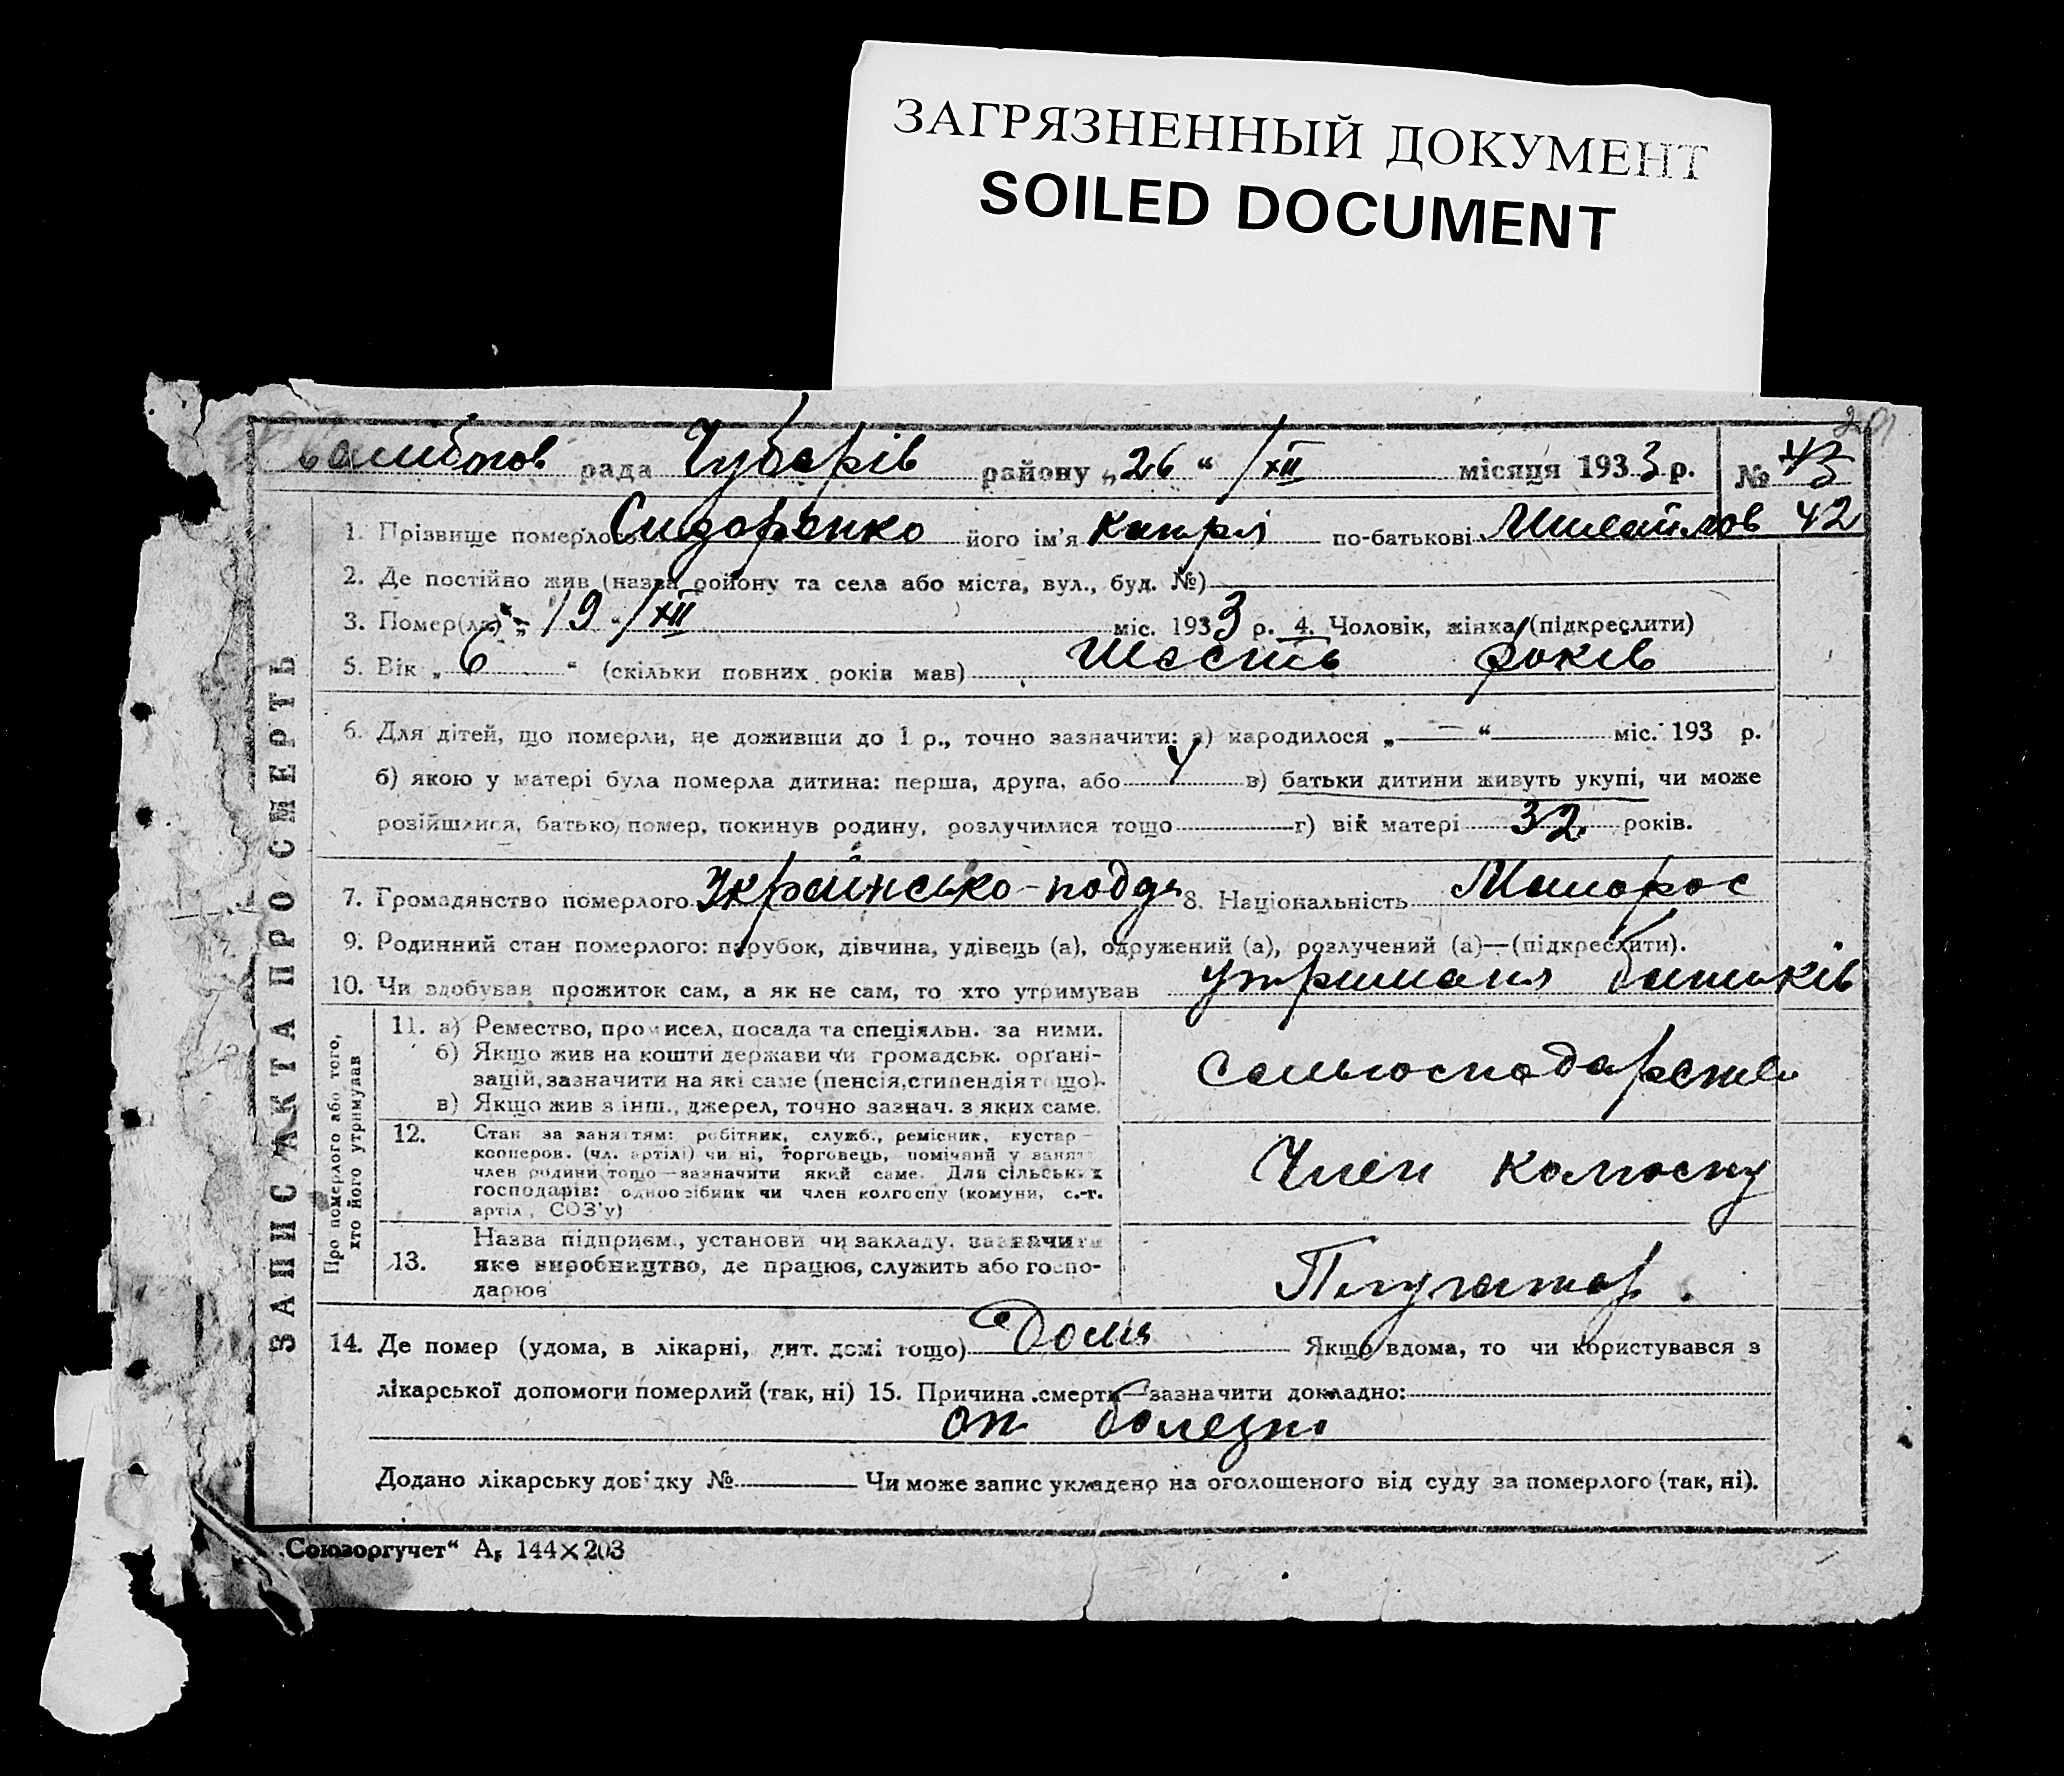 ЗАГРЯЗНЕННЫЙ ДОКУМЕНТ
SOILED DOCUMENT
201
рада Чубарів району „26“ /XII місяця 1933 р. № 43
1. Прізвище померлого Сидоренко його ім'я по-батькові Михайлов 42
2. Де постійно жив (назва району та села або міста, вул., буд. №)
3. Помер(ла) „19“ /XII міс. 1933 р. 4. Чоловік, жінка (підкреслити)
5. Вік „6“ (скільки повних років мав) Шесть років
6. Для дітей, що померли, не доживши до 1 р., точно зазначити: а) народилося „—“ міс. 193 р.
б) якою у матері була померла дитина: перша, друга, або 4 в) батьки дитини живуть укупі, чи може
розійшлися, батько помер, покинув родину, розлучилися тощо г) вік матері 32 років.
7. Громадянство померлого Українсько-подда 8. Національність Малорос
9. Родинний стан померлого: парубок, дівчина, удівець (а), одружений (а), розлучений (а)—(підкреслити).
10. Чи здобував прожиток сам, а як не сам, то хто утримував утриманя батьків
ЗАПИС АКТА ПРО СМЕРТЬ
Про померлого або того, хто його утримував
11. а) Ремество, промисел, посада та спеціяльн. за ними.
б) Якщо жив на кошти держави чи громадськ. органі-
зацій, зазначити на які саме (пенсія, стипендія тощо).
в) Якщо жив з інш., джерел, точно зазнач. з яких саме.
Сельгосподарство
12. Стан за заняттям: робітник, служб., ремісник, кустар—
кооперов. (чл. артілі) чи ні, торговець, помічний у занят.
член родини тощо—зазначити який саме. Для сільських
господарів: одноосібник чи член колгоспу (комуни, с.-г.
артіл., СОЗ'у)
Член колгоспу
13. Назва підприєм., установи чи закладу, зазначити
яке виробництво, де працюв, служить або госпо-
дарюв
14. Де помер (удома, в лікарні, дит. домі тощо) Дома Якщо вдома, то чи користувався з
лікарської допомоги померлий (так, ні) 15. Причина смерти—зазначити докладно:
от болезни
Додано лікарську довідку № Чи може запис укладено на оголошеного від суду за померлого (так, ні).
„Союзоргучет“ А5 144×203